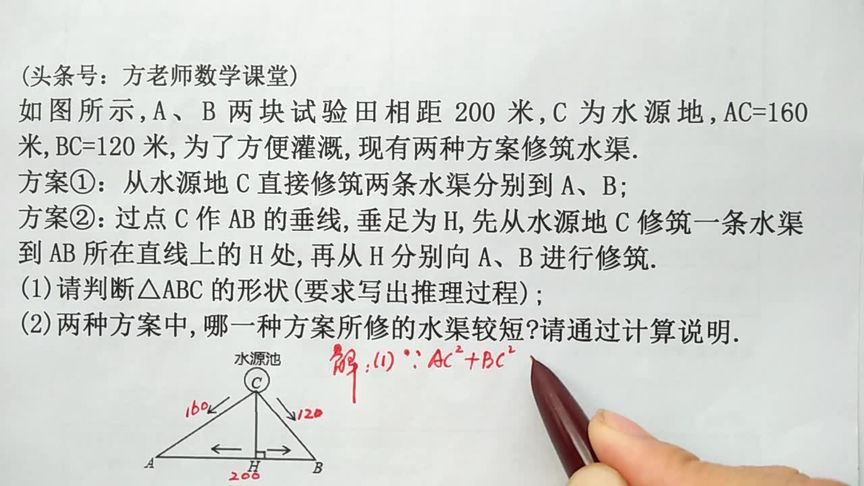 (头条号：方老师数学课堂)
如图所示,A、B 两块试验田相距 200 米,C 为水源地,AC=160
米,BC=120 米,为了方便灌溉,现有两种方案修筑水渠.
方案①：从水源地 C 直接修筑两条水渠分别到 A、B;
方案②：过点 C 作 AB 的垂线,垂足为 H,先从水源地 C 修筑一条水渠
到 AB 所在直线上的 H 处,再从 H 分别向 A、B 进行修筑.
(1)请判断△ABC 的形状(要求写出推理过程);
(2)两种方案中,哪一种方案所修的水渠较短?请通过计算说明.
水源池
解:(1)∵AC²+BC²
C
160
120
A
H
B
200